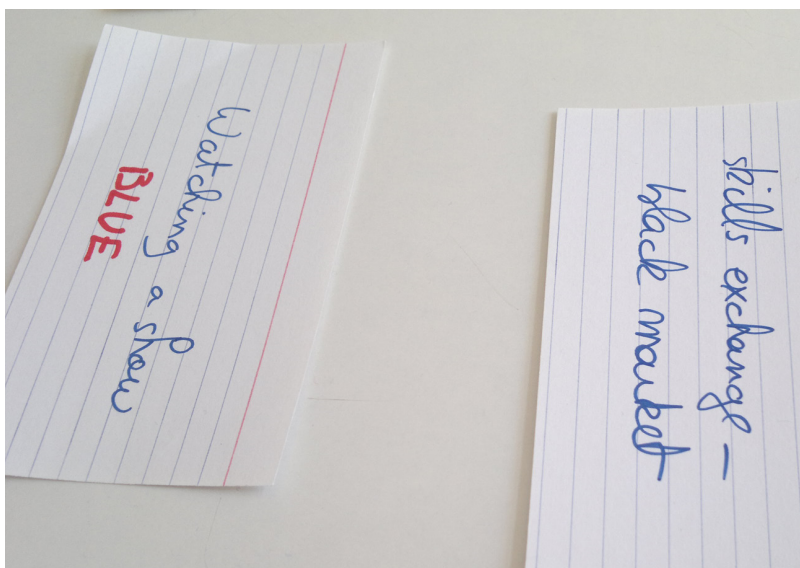 Watching a show
BLUE
skills exchange -
black market